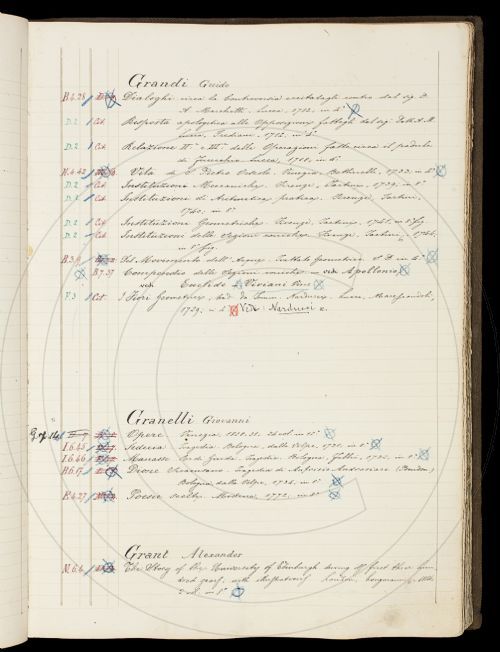 Grandi Guido
B.4.28 Dialoghi circa la Controversia eccitatagli contro dal sig. D.
A. Marchetti, Lucca, 1712, in 4°
D.2 Cit. Risposta apologetica alle Opposizioni fattegli dal sig. Dott. A. M.
Lucca, Frediani, 1712, in 4°
D.2 Cit. Relazione delle Operazioni fatte circa il padule
di Fucecchio Lucca, 1718, in 4°
M.4.42 Vita di S. Pietro Orseolo. Venezia, Bettinelli, 1733, in 4°
D.2 Cit. Instituzioni Meccaniche, Firenze, Tartini, 1739, in 8°
D.2 Cit. Instituzioni di Aritmetica pratica. Firenze, Tartini,
1740, in 8°
D.2 Cit. Instituzioni Geometriche. Firenze, Tartini, 1741, in 8° fig.
D.2 Cit. Instituzioni delle Sezioni coniche. Firenze, Tartini, 1744,
in 8° fig.
Del Movimento dell' Acque, Trattato Geometrico
B.7.37 Compendio delle Sezioni coniche — vedi Apollonio
vedi Euclide – Viviani Vinc.
F.3 Cit. I Fiori Geometrici, trad. da Tomm. Narducci. Lucca, Marescandoli,
1729, in 4° Vedi Narducci
Granelli Giovanni
Opere. Venezia,
I.6.45 Sedecia Tragedia. Bologna, dalla Volpe, 1731, in 8°
I.6.46 Manasse Re di Giuda, Tragedia. Bologna,
H.6.17 Dione Siracusano, Tragedia
Bologna, dalla Volpe, 1734, in 8°
E.4.27 Poesie scelte. Modena, 1772, in 4°
Grant Alexander
M.6.6 The Story of the University of Edinburgh during its first three hun-
dred years, with illustrations London, Longmans,
2 vol. in 8°